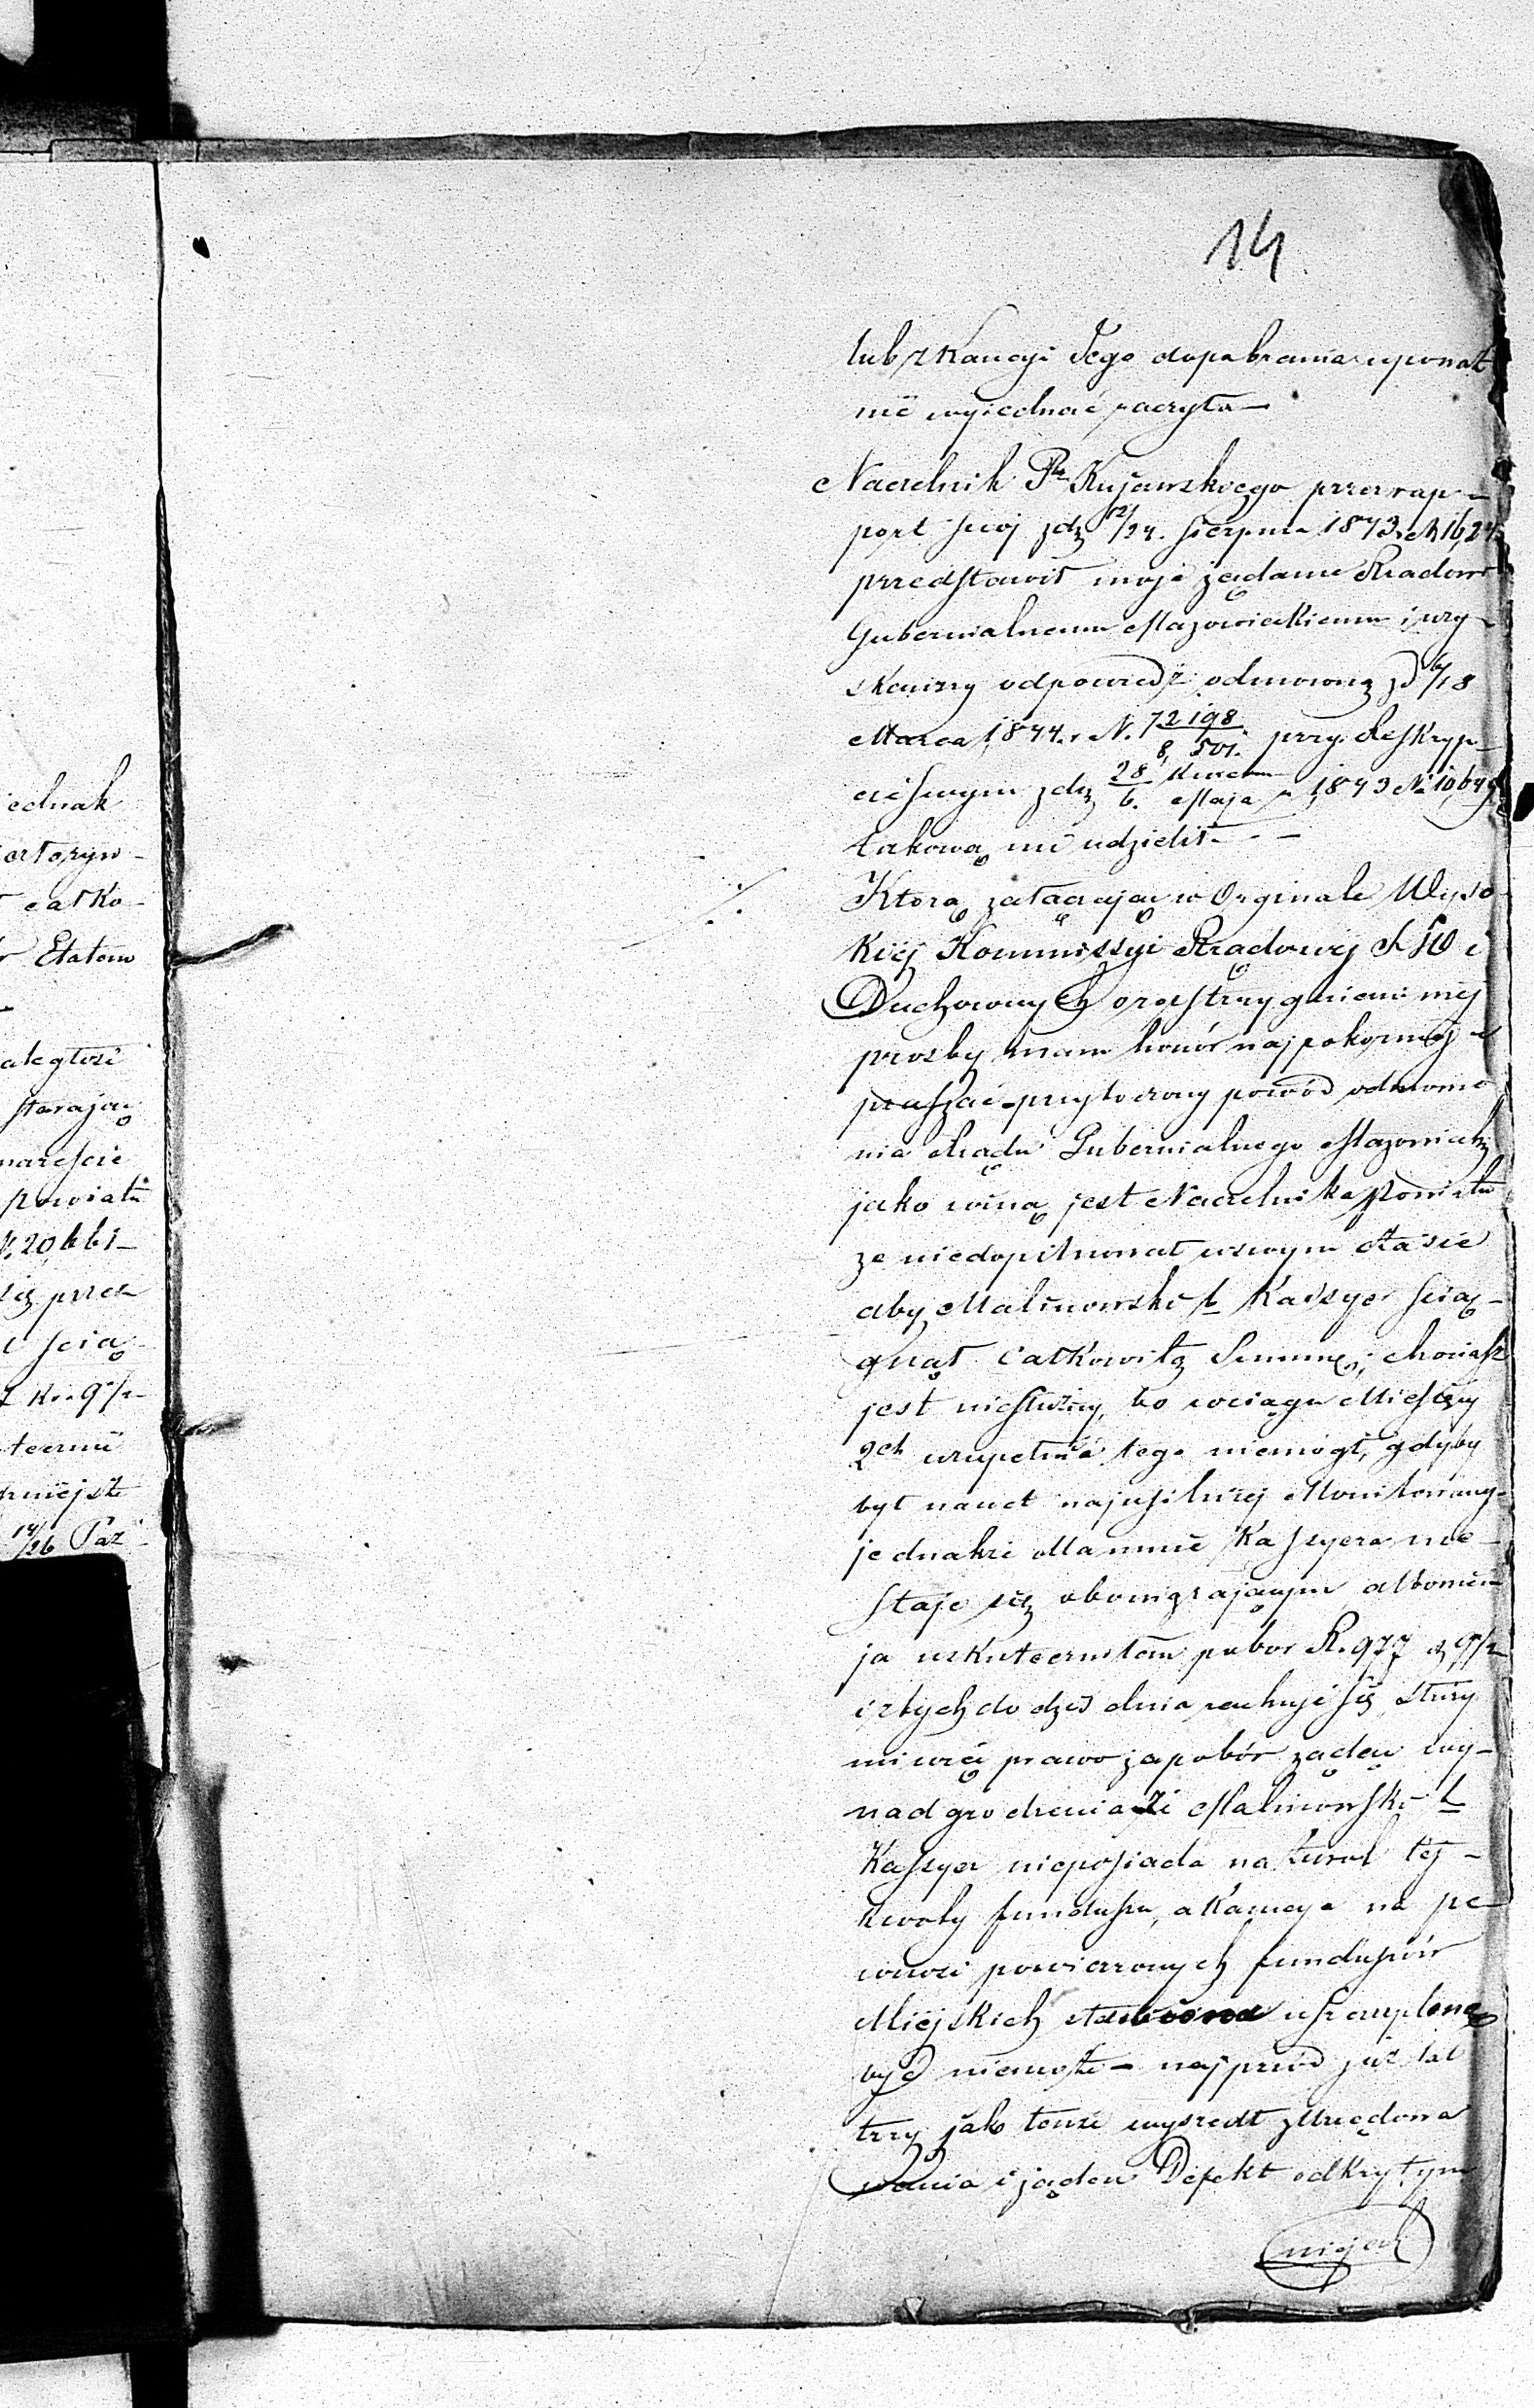 14
lub z Kaucyi Jego do pobrania uponat
nie wyjednać raczyła —
Naczelnik Ptu Kujawskiego przez rap-
port swój z d. 12/24 Sierpnia 1843 r. N. 16,24
przedstawił moje żądanie Rządowi
Gubernialnemu Mazowieckiemu i uzy-
skawszy odpowiedź odmowną z d 6/18
Marca 1844 r. N. 72198/8,501. przy Reskryp-
cie swym z d. 28 Kwietnia/6. Maja r. 1843 N. 10,649
takową mi udzielił — —
Którą załączając w Orginale Wyso-
kiej Kommissyi Rządowej S W i
Duchownych o rozstrzygnienie mej
prosby mam honór najpokorniej u
praszać — przytoczony powód odmowie
nia Rządu Gubernialnego Mazowieckiej
jako winą jest Naczelnika Powiatu
ze niedopilnował w swym czasie
aby Malinowski b Kassyer ścią-
gnął Całkowitą Summę, chociasz
jest niesłuszny, bo w ciągu Miesięcy
2ch uzupełnić tego niemógł, gdyby
był nawet najusilniej Monitowany
jednakże dla mnie Kassyera nie
staje się obowięzającym albowiem
ja uskuteczniłem pobor R. 977 k 9 1/2
i z tych do dziś dnia rachuję się, służy
mi więc prawo za pobór żądać wy-
nadgrodzenia Że Malinowski b
Kassyer nieposiada na zwrot tej
kwoty funduszu, a Kaucya na pe-
wność powierzonych funduszów
Miejskich stawiona uszczuplona
być niemoże — najprzód już lat
trzy jak tenże wyszedł z Urzędowa
wania i żaden Defekt odkrytym
niejest
iednak
całko-
Etatem
aległość
starając
nareście
powiatu
N. 20,661 —
się przez
ścią
k. 9 1/2
14/26 Paź